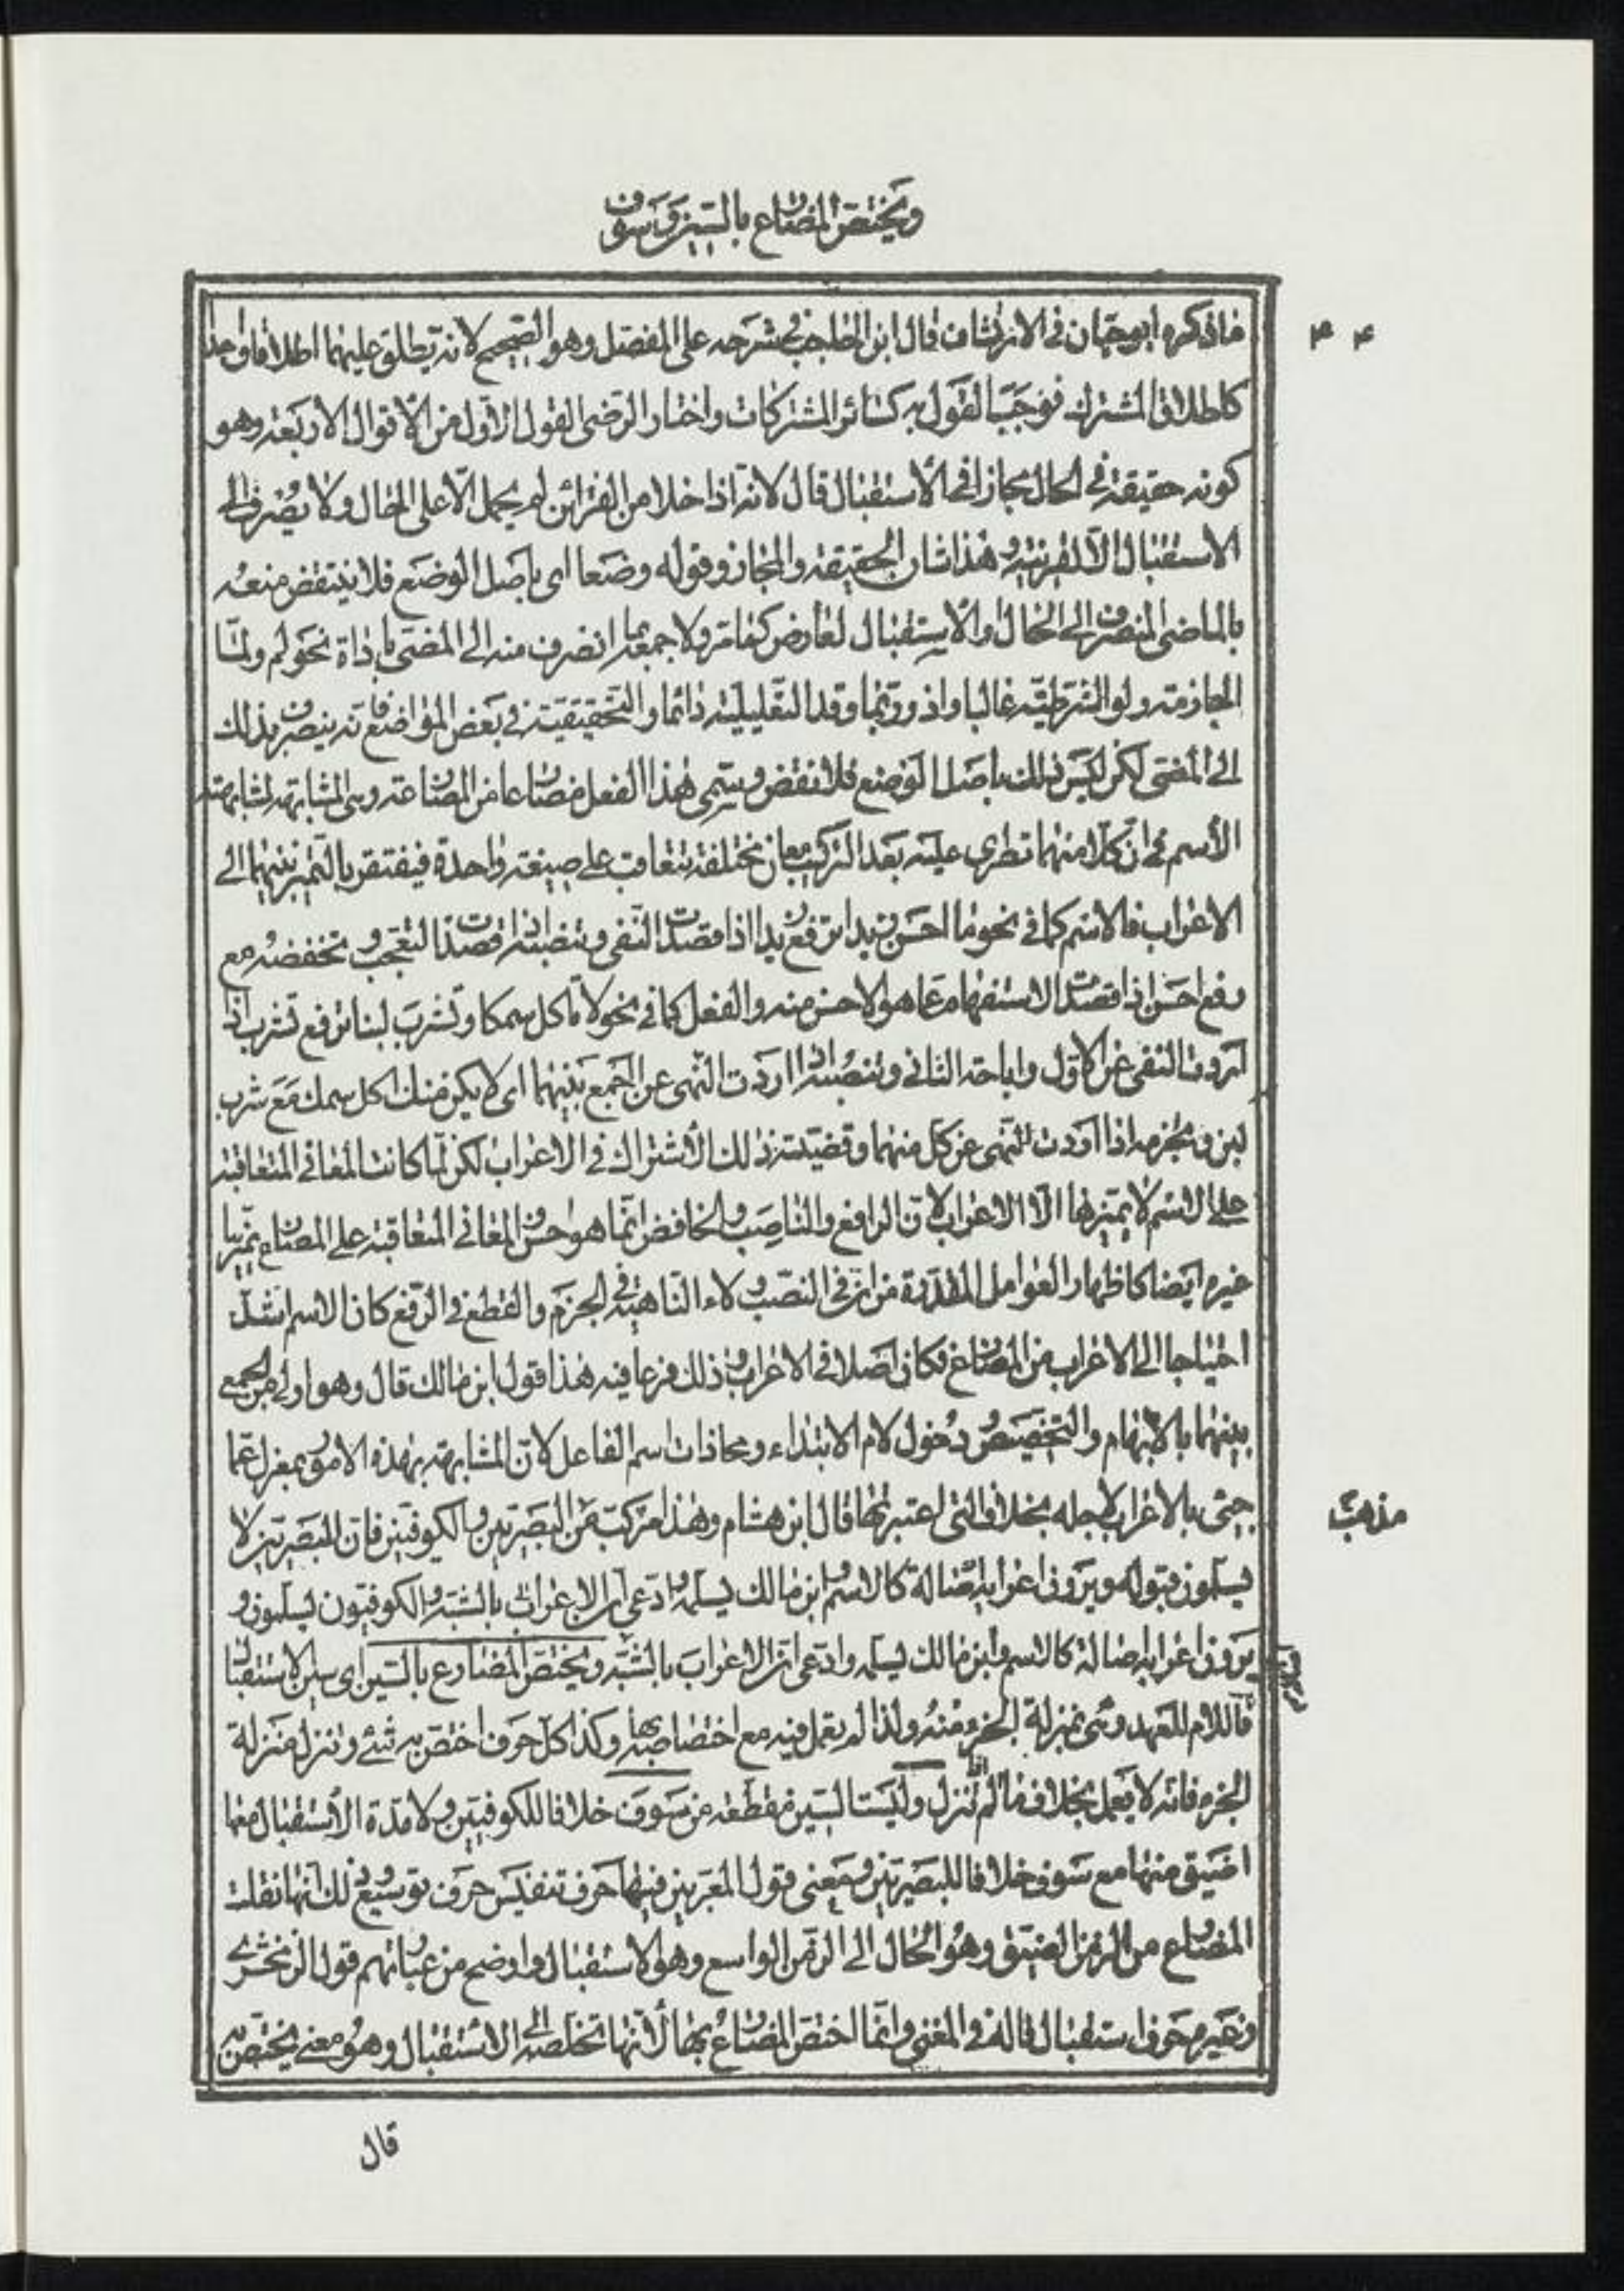 ويختص المضارع بالسين وسوف
ما ذكره ابو حيان فى الارتشاف قال ابن الحاجب فى شرحه على المفصل وهو الصحيح لانه يطلق عليهما اطلاقا واحدا
۴ ۴
كاطلاق المشترك فوجب القول به كسائر المشتركات واختار الرضى القول الاول من الاقوال الاربعة وهو
كونه حقيقة فى الحال مجازا فى الاستقبال قال لانه اذا خلا من القرائن لم يحمل الا على الحال ولا يصرف الى
الاستقبال الا لقرينة وهذا شان الحقيقة والمجاز وقوله وضعا اى باصل الوضع فلا ينتقض منعه
بالماضى المنصرف الى الحال او الاستقبال لعارض كما مر ولا جمعه بما انصرف منه الى المضى باداة نحو لم ولما
الجازمة ولو الشرطية غالبا واذ وربما وقد التقليلية دائما والتحقيقية فى بعض المواضع فانه ينصرف بذلك
الى المضى لكن ليس ذلك باصل الوضع فلا نقض وسمى هذا الفعل مضارعا من المضارعة وهى المشابهة لمشابهته
الاسم فى ان كلا منهما تطرى عليه بعد التركيب معان مختلفة تتعاقب على صيغة واحدة فيفتقر بالتميز بينهما الى
الاعراب فالاسم كما فى نحو ما احسن زيدا ترفع زيدا اذا قصدت النفى وتنصبه اذا قصدت التعجب وتخفضه مع
رفع احسن اذا قصدت الاستفهام عما هو الاحسن منه والفعل كما فى نحو لا تاكل سمكا وتشرب لبنا ترفع تشرب اذا
اردت النفى عن الاول واباحة الثانى وتنصبه اذا اردت النهى عن الجمع بينهما اى لا يكن منك اكل سمك مع شرب
لبن وتجزمه اذا اردت النهى عن كل منهما وقضية ذلك الاشتراك فى الاعراب لكن لما كانت المعانى المتعاقبة
على الاسم لا يميزها الا الاعراب لان الرافع والناصب والخافض انما هو احسن والمعانى المتعاقبة على المضارع يميزها
غيره ايضا كاظهار العوامل المقدرة من ان فى النصب ولاء الناهية فى الجزم والقطع فى الرفع كان الاسم اشد
احتياجا الى الاعراب من المضارع فكان اصلا فى الاعراب وذلك فرعا فيه هذا قول ابن مالك قال وهو اولى من الجمع
بينهما بالابهام والتخصيص ودخول لام الابتداء ومحاذات اسم الفاعل لان المشابهة بهذه الامور بمعزل عما
جىء بالاعراب لاجله بخلاف التى اعتبرتها قال ابن هشام وهذا مركب من البصريين والكوفيين فان البصريين لا
مذهب
يسلمون قبوله ويرون اعرابه اصالة كالاسم وابن مالك يسلمه وادعى ان الاعراب بالشبه والكوفيون يسلمون و
يرون اعرابه اصالة كالاسم وابن مالك يسلمه وادعى ان الاعراب بالشبه ويختص المضارع بالسين اى سين الاستقبال
فاللام للعهد وهى بمنزلة الجزء منه ولذا لم يعمل فيه مع اختصاصها به وكذا كل حرف اختص بشئ وتنزل منزلة
الجزء فانه لا يعمل بخلاف ما لم تنزل وليست السين مقطعة من سوف خلافا للكوفيين ولا مدة الاستقبال معها
اضيق منها مع سوف خلافا للبصريين ومعنى قول المعربين فيها حرف تنفيس حرف توسيع وذلك انها نقلت
المضارع من الزمن الضيق وهو الحال الى الزمن الواسع وهو الاستقبال واوضح من عباراتهم قول الزمخشرى
وغيره حرف استقبال قاله فى المغنى وانما اختص المضارع بها لانها تخلصه الى الاستقبال وهو معنى يختص به
قال